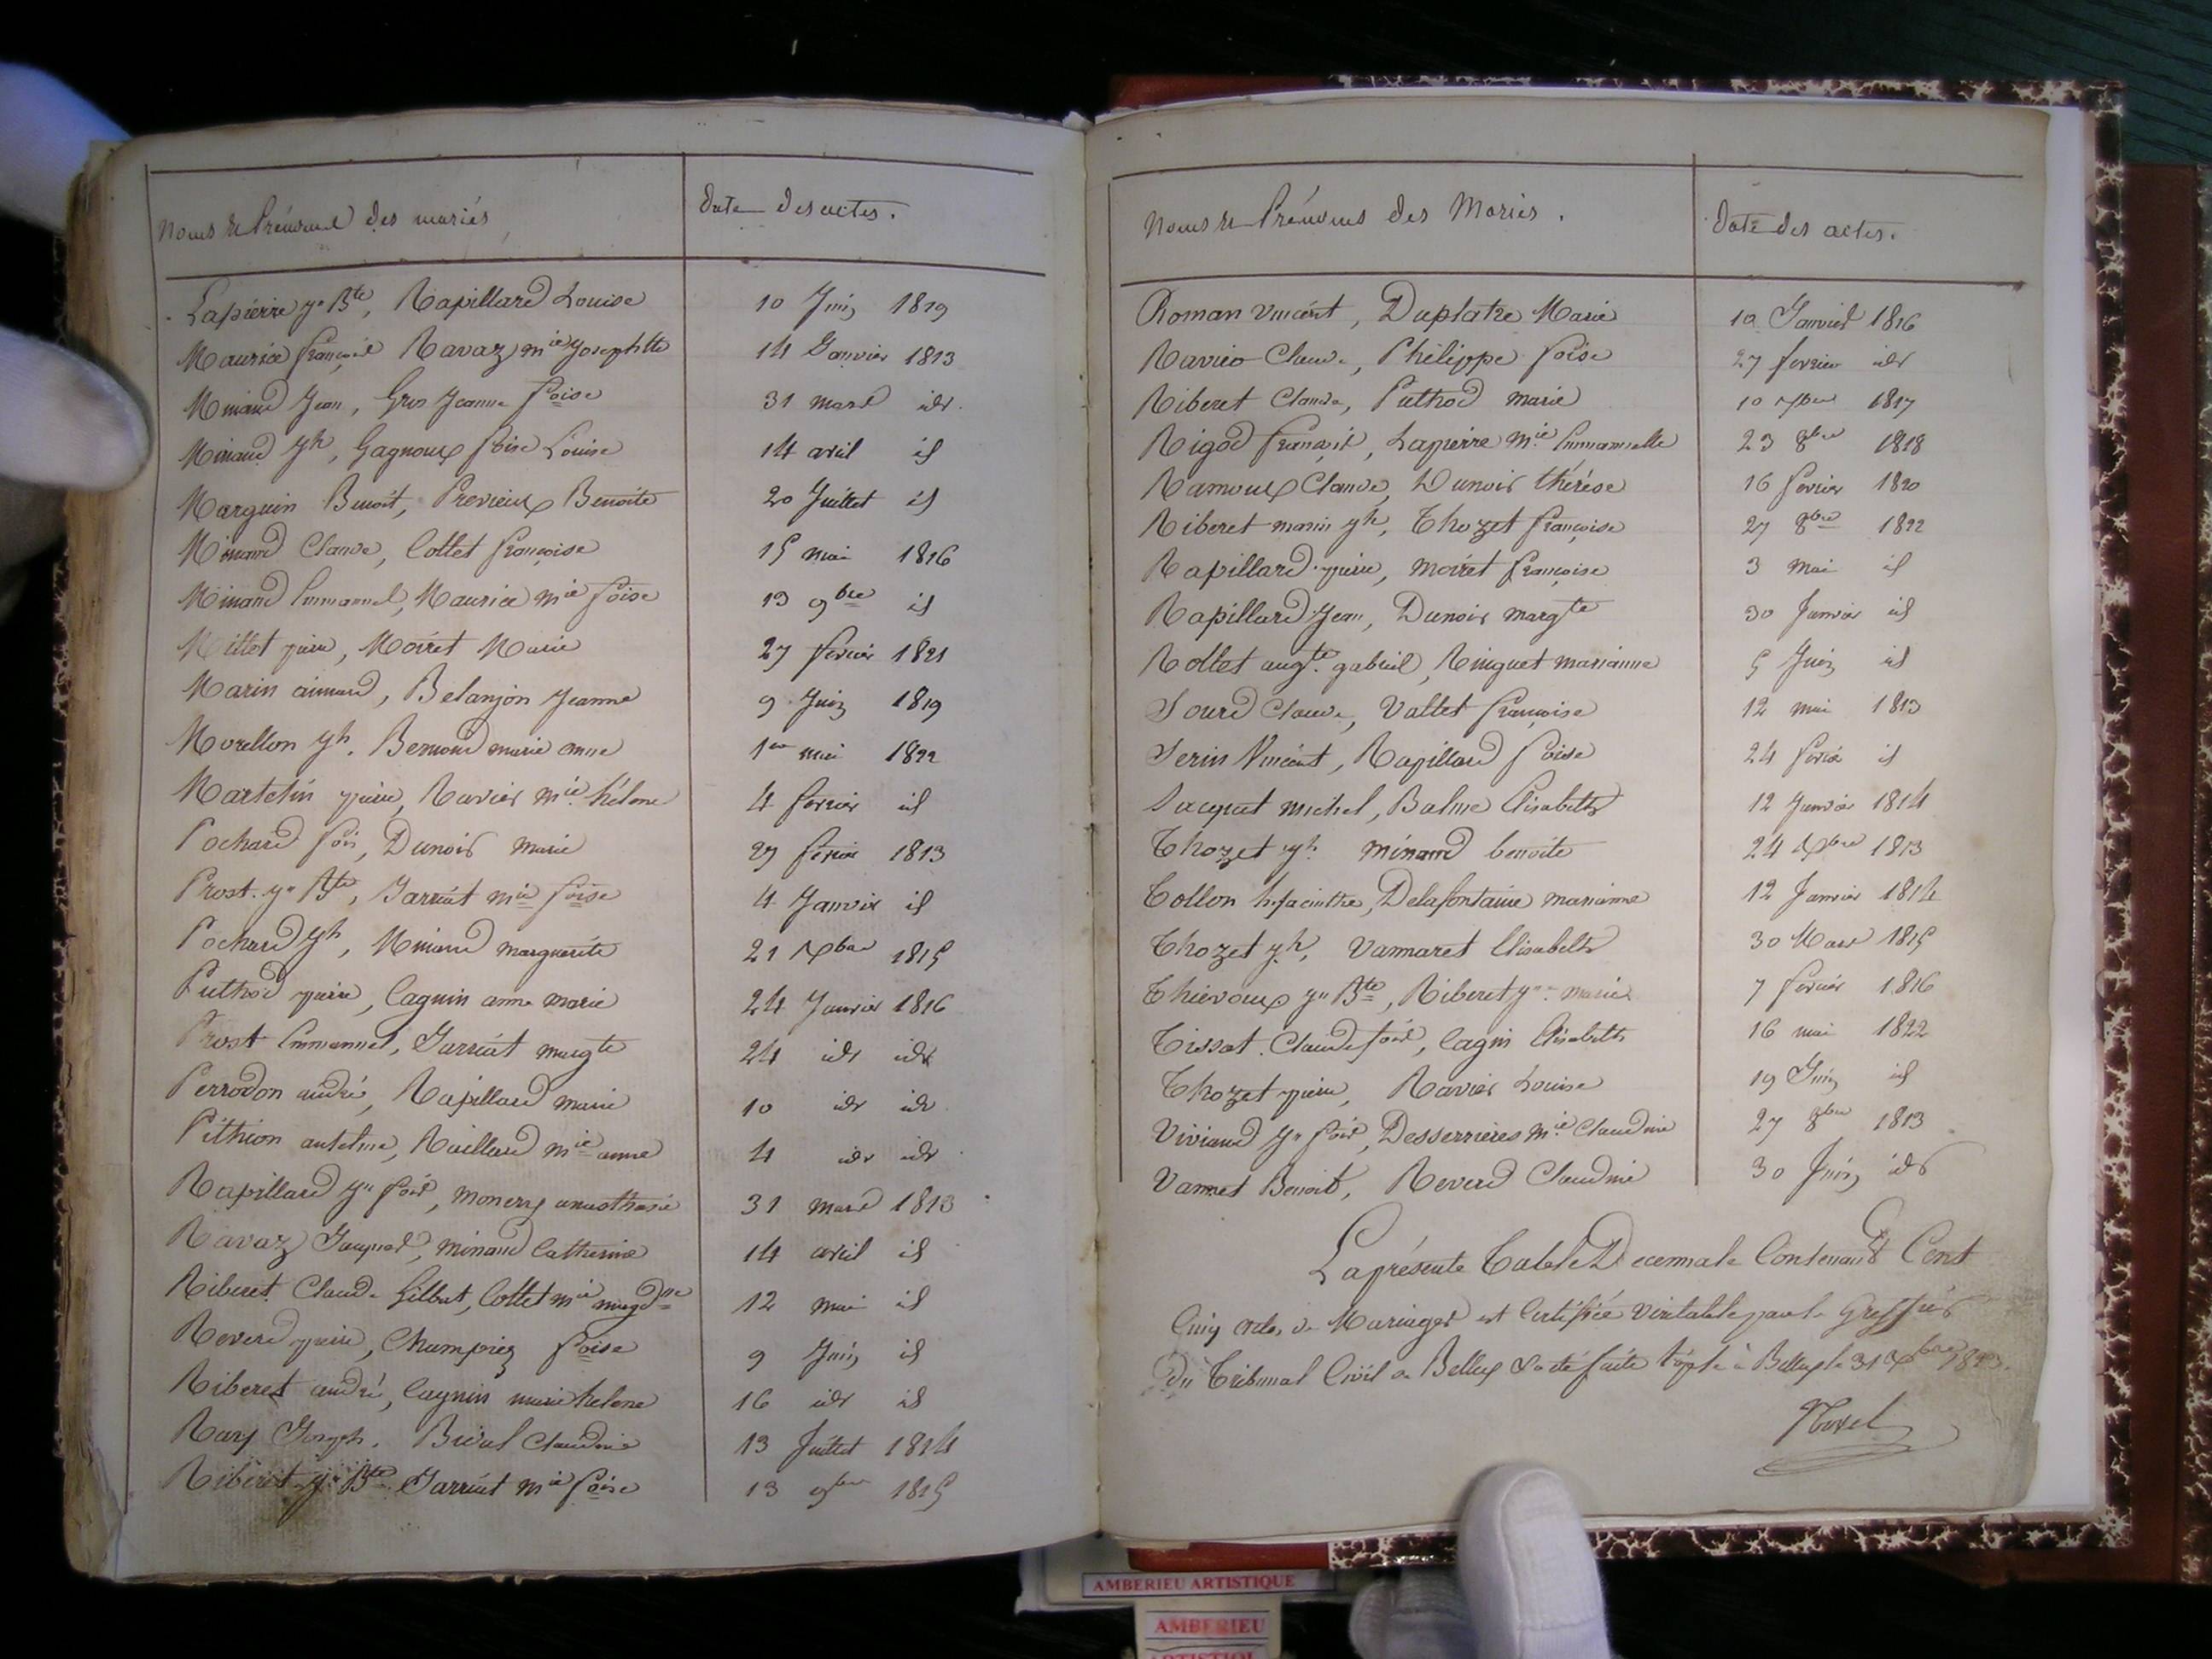 Noms & Prénoms des mariés
Date des actes.
Lapierre jn Bte, Rapillard Louise 10 Juin 1819
Maurice françois Ravaz mie Josephtte 14 Janvier 1813
Minand Jean, Gros Jeanne foise 31 mars idr.
Minand jh, Gagnoux foise Louise 14 avril id
Marguin Benoit, Previeux Benoite 20 Juillet id
Minand Claude, Collet françoise 15 mai 1816
Minand Emmanuel, Maurice mie foise 13 9bre id
Millet pierre, Moiret Marie 27 fevrier 1821
Marin aimard, Belanjon Jeanne 9 Juin 1819
Morellon jh. Bernond marie anne 1er mai 1822
Martelin pierre, Ravier mie. hélene 4 fevrier id
Pochard fois, Dunois marie 27 fevrier 1813
Prost. jn Bte, Jarriat mie foise 4 Janvier id
Pochard jh, Minand marguerite 21 Xbre 1815
Puthod pierre, Cagnin anne marie 24 Janvier 1816
Prost Emmanuel, Jarriat margte 24 idr idr
Perrodon andré, Rapillard marie 10 idr idr
Pithion antelme, Raillard mie anne 4 idr idr
Rapillard jn fois, monery anasthasie 31 mars 1813
Ravaz Jacques, minand Catherine 14 avril id
Riberet Claude Gilbert, Collet mie magdne 12 mai id
Reverd pierre, Champiez foise 9 Juin id
Riberet andré, Cagnin marie helene 16 idr id
Rary Joseph. Claudine 13 Juillet 1814
Riberet jn Bte Jarriat mie foise 13 9bre 1815
Noms & Prénoms des Mariés.
Date des actes.
Roman Vincent, Duplatre Marie 10 Janvier 1816
Ravier Claude, Philippe foise 27 fevrier idr
Riberet Claude, Puthod marie 10 7bre 1817
Rigod françois, Lapierre mie. Emmanuelle 23 8bre 1818
Ramoux Claude, Dunois thérése 16 fevrier 1820
Riberet marin jh, Thozet françoise 27 8bre 1822
Rapillard pierre, moiret françoise 3 mai id
Rapillard Jean, Dunois margte 30 Janvier id
Rollet augte. gabriel, Ringuet marianne 5 Juin id
Sourd Claude, Vallet françoise 12 mai 1813
Serin Vincent, Rapillard foise 24 fevrier id
Sacquet michel, Balme Elisabeth 12 Janvier 1814
Thozet jh. minand benoite 24 Xbre 1813
Tollon hyacinthe, Delafontaine marianne 12 Janvier 1814
Thozet jh, Vannaret Elisabeth 30 Mars 1815
Thievoux jn Bte, Riberet jne. marie 7 fevrier 1816
Tissot. Claude fois, Cagnin Elisabeth 16 mai 1822
Thozet pierre, Ravier Louise 19 Juin id
Viviand jn fois, Desserrieres mie. Claudine 27 8bre 1813
Vannet Benoit, Reverd Claudine 30 Juin idr
La présente Table Decennale Contenant Cent
Cinq actes de Mariages est Certifiée véritable par le Greffier
du Tribunal Civil de Belley à Belley le 31 Xbre 1823.
Morel
AMBERIEU ARTISTIQUE
AMBERIEU
ARTISTIQUE